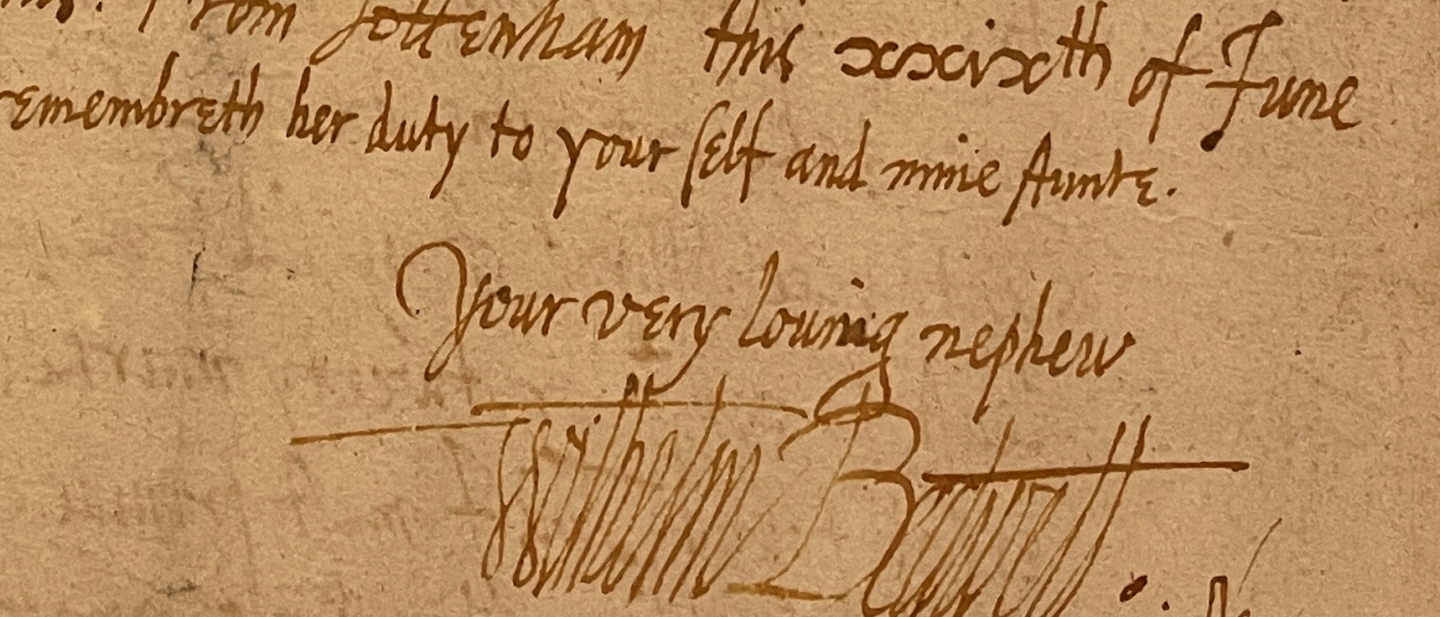 From Tottenham this xxixth of June
remembreth her duty to your self and mine Aunte.
Your very louing nephew
Wilhelm Bedwell